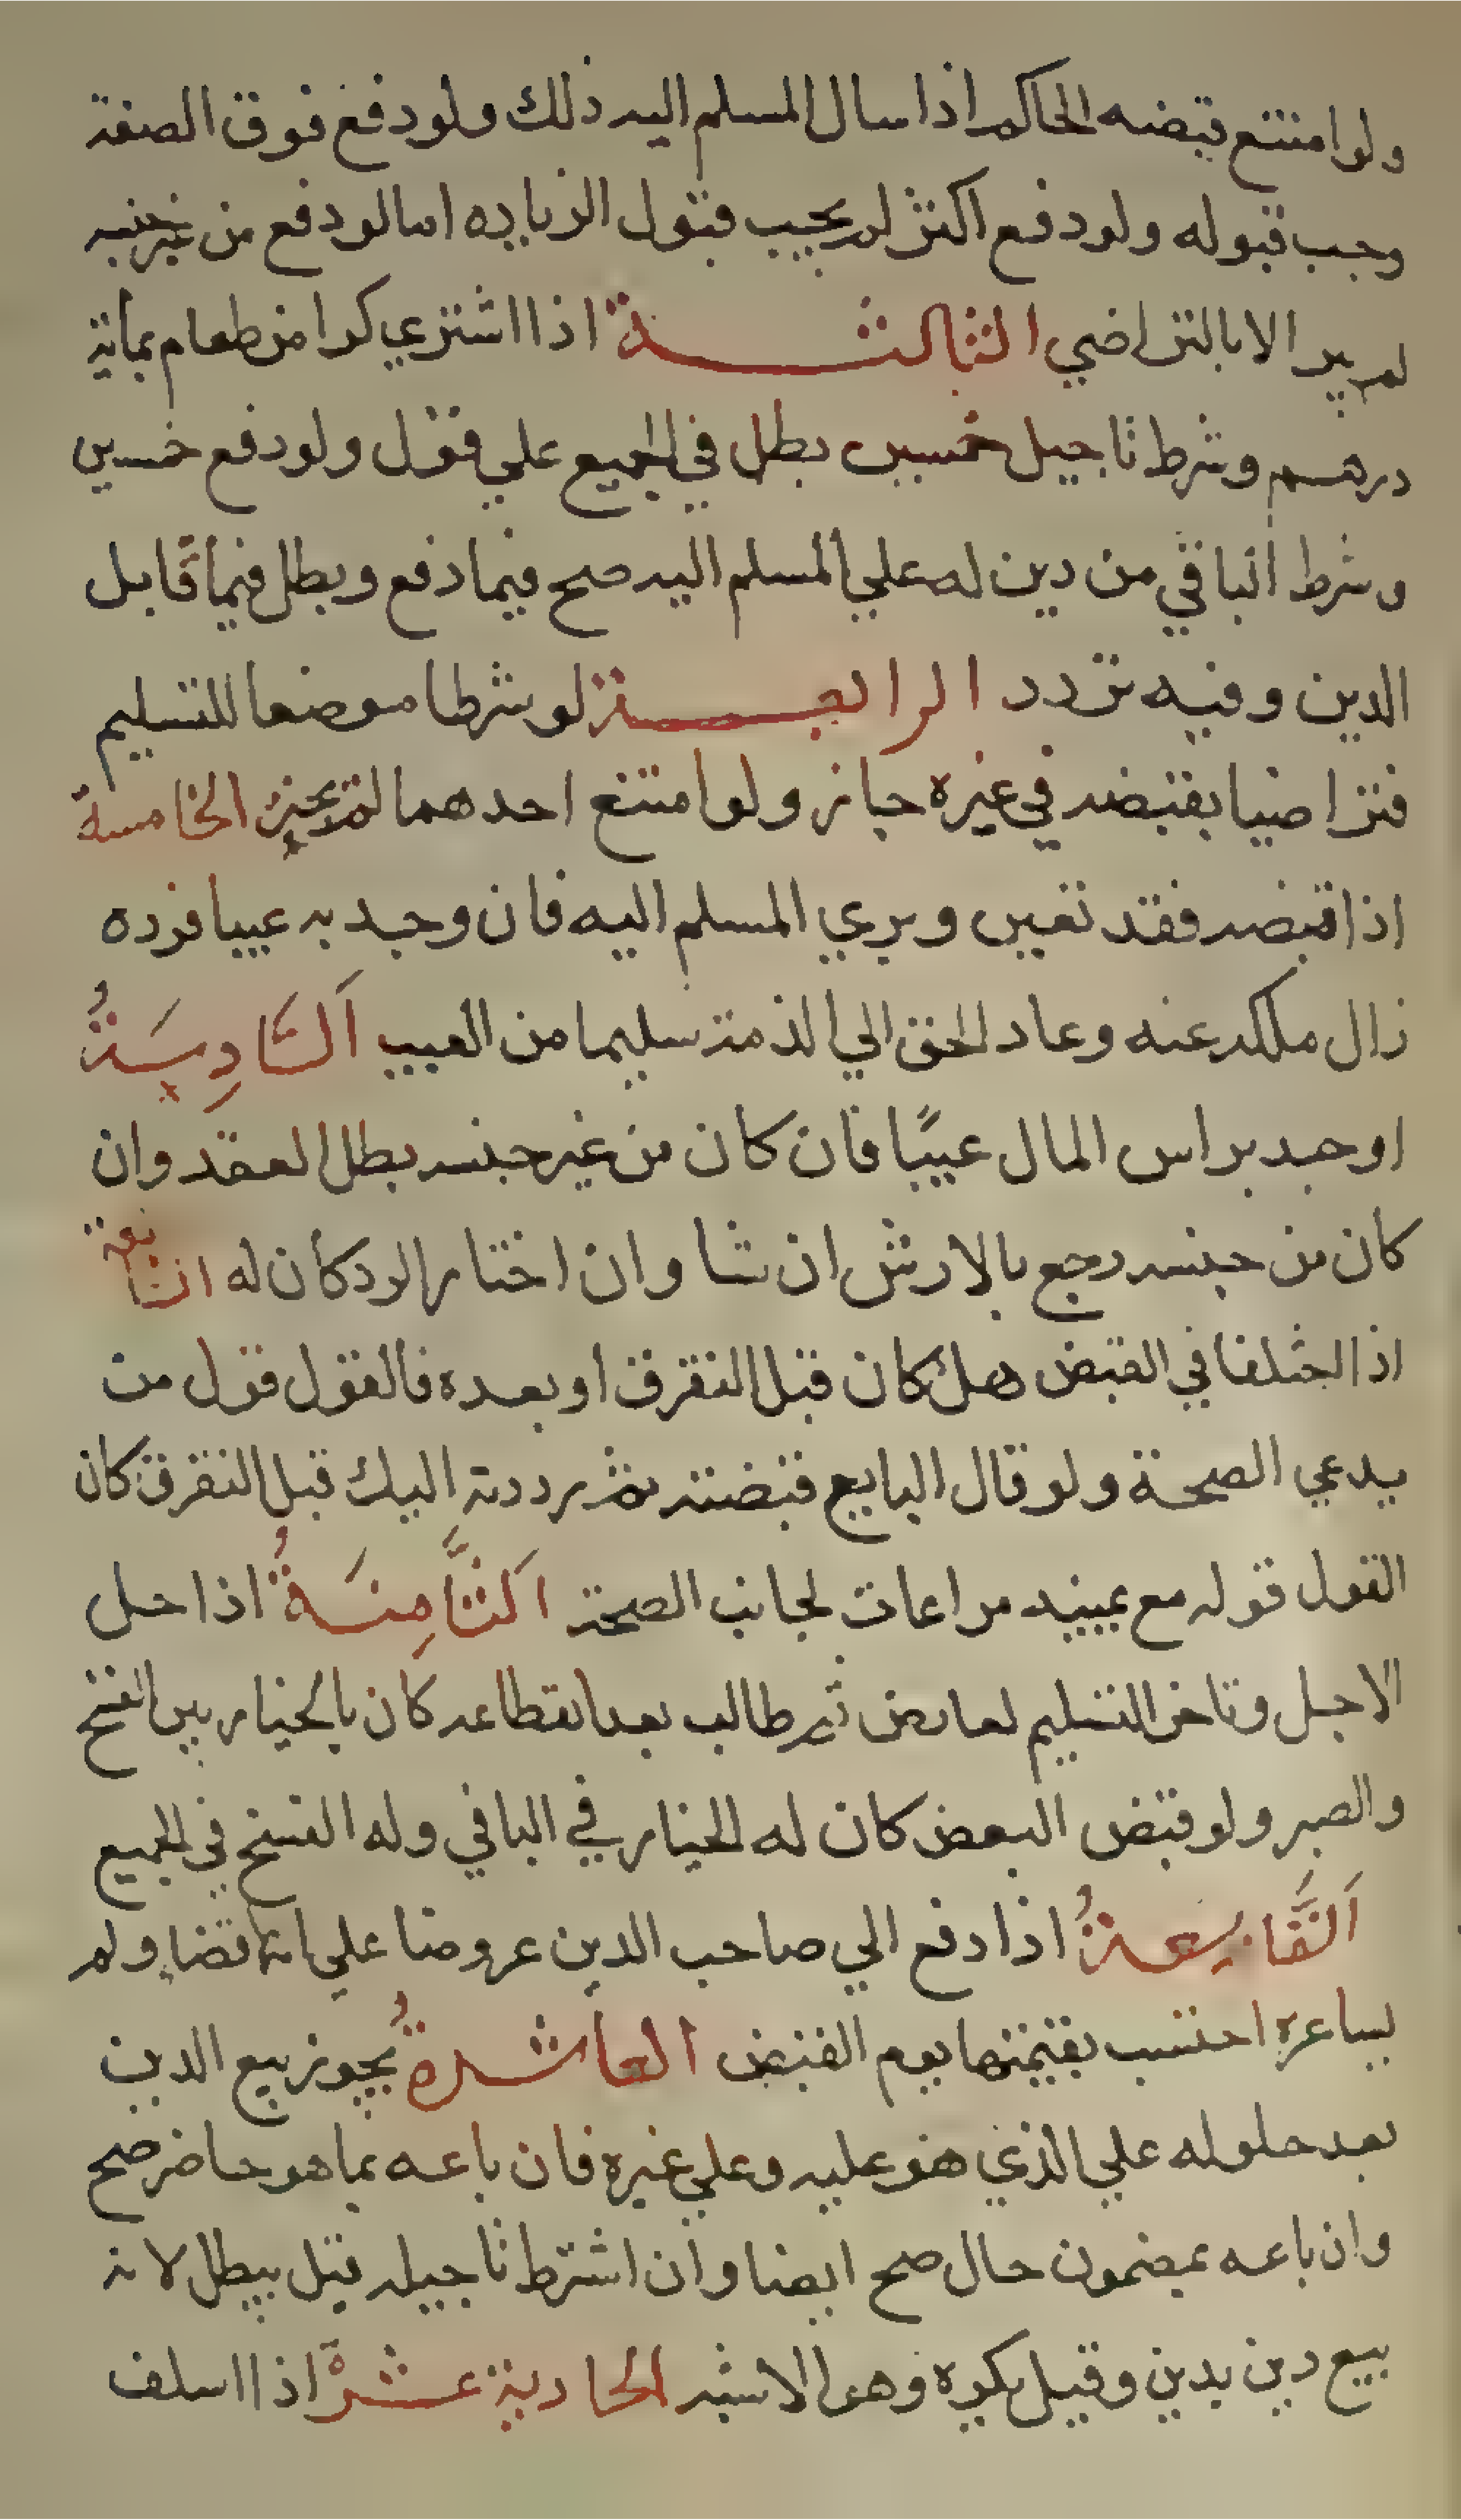 ولو امتنع قبضه الحاكم اذا سال المسلم اليه ذلك ولو دفع فوق الصفة
وجب قبوله ولو دفع اكثر لم يجب قبول الزياده اما لو دفع من غير جنسه
لم يبر الا بالتراضي الثالثة اذا اشتري كرا من طعام بماية
درهم وشرط تاجيل خمسين بطل في الجميع علي قول ولو دفع خمسين
وشرط الباقي من دين له علي المسلم اليه صح فيما دفع وبطل فيما قابل
الدين وفيه تردد الرابعة لو شرطا موضعا للتسليم
فتراضيا بقبضه في غيره جاز ولو امتنع احدهما لم يجبر الخامسة
اذا قبضه فقد تعين وبري المسلم اليه فان وجد به عيبا فرده
زال ملكه عنه وعاد الحق الي الذمة سليما من العيب اَلسَّادِسَةُ
اوجد براس المال عيبًا فان كان من غير جنسه بطل العقد وان
كان من جنسه رجع بالارش ان شا وان اختار الرد كان له السابعة
اذا اختلفا في القبض هل كان قبل التفرق او بعده فالقول قول من
يدعي الصحة ولو قال البايع قبضته ثم رددته اليك قبل التفرق كان
القول قوله مع يمينه مراعات لجانب الصحة اَلثَّامِنَةُ اذا حل
الاجل وتاخر التسليم لعارض ثم طالب بعد انقطاعه كان بالخيار بين الفسخ
والصبر ولو قبض البعض كان له الخيار في الباقي وله الفسخ في الجميع
اَلتَّاسِعةُ اذا دفع الي صاحب الدين عروضا علي انها قضا ولم
يساعره احتسب بقيمتها يوم القبض العاشرةُ يجوز بيع الدين
بعد حلوله علي الذي هو عليه وعلي غيره فان باعه بما هو حاضر صح
وان باعه بمضمون حال صح ايضا وان اشترط تاجيله قيل يبطل لانه
بيع دين بدين وقيل يكره وهو الاشبه الحادية عشر اذا اسلف